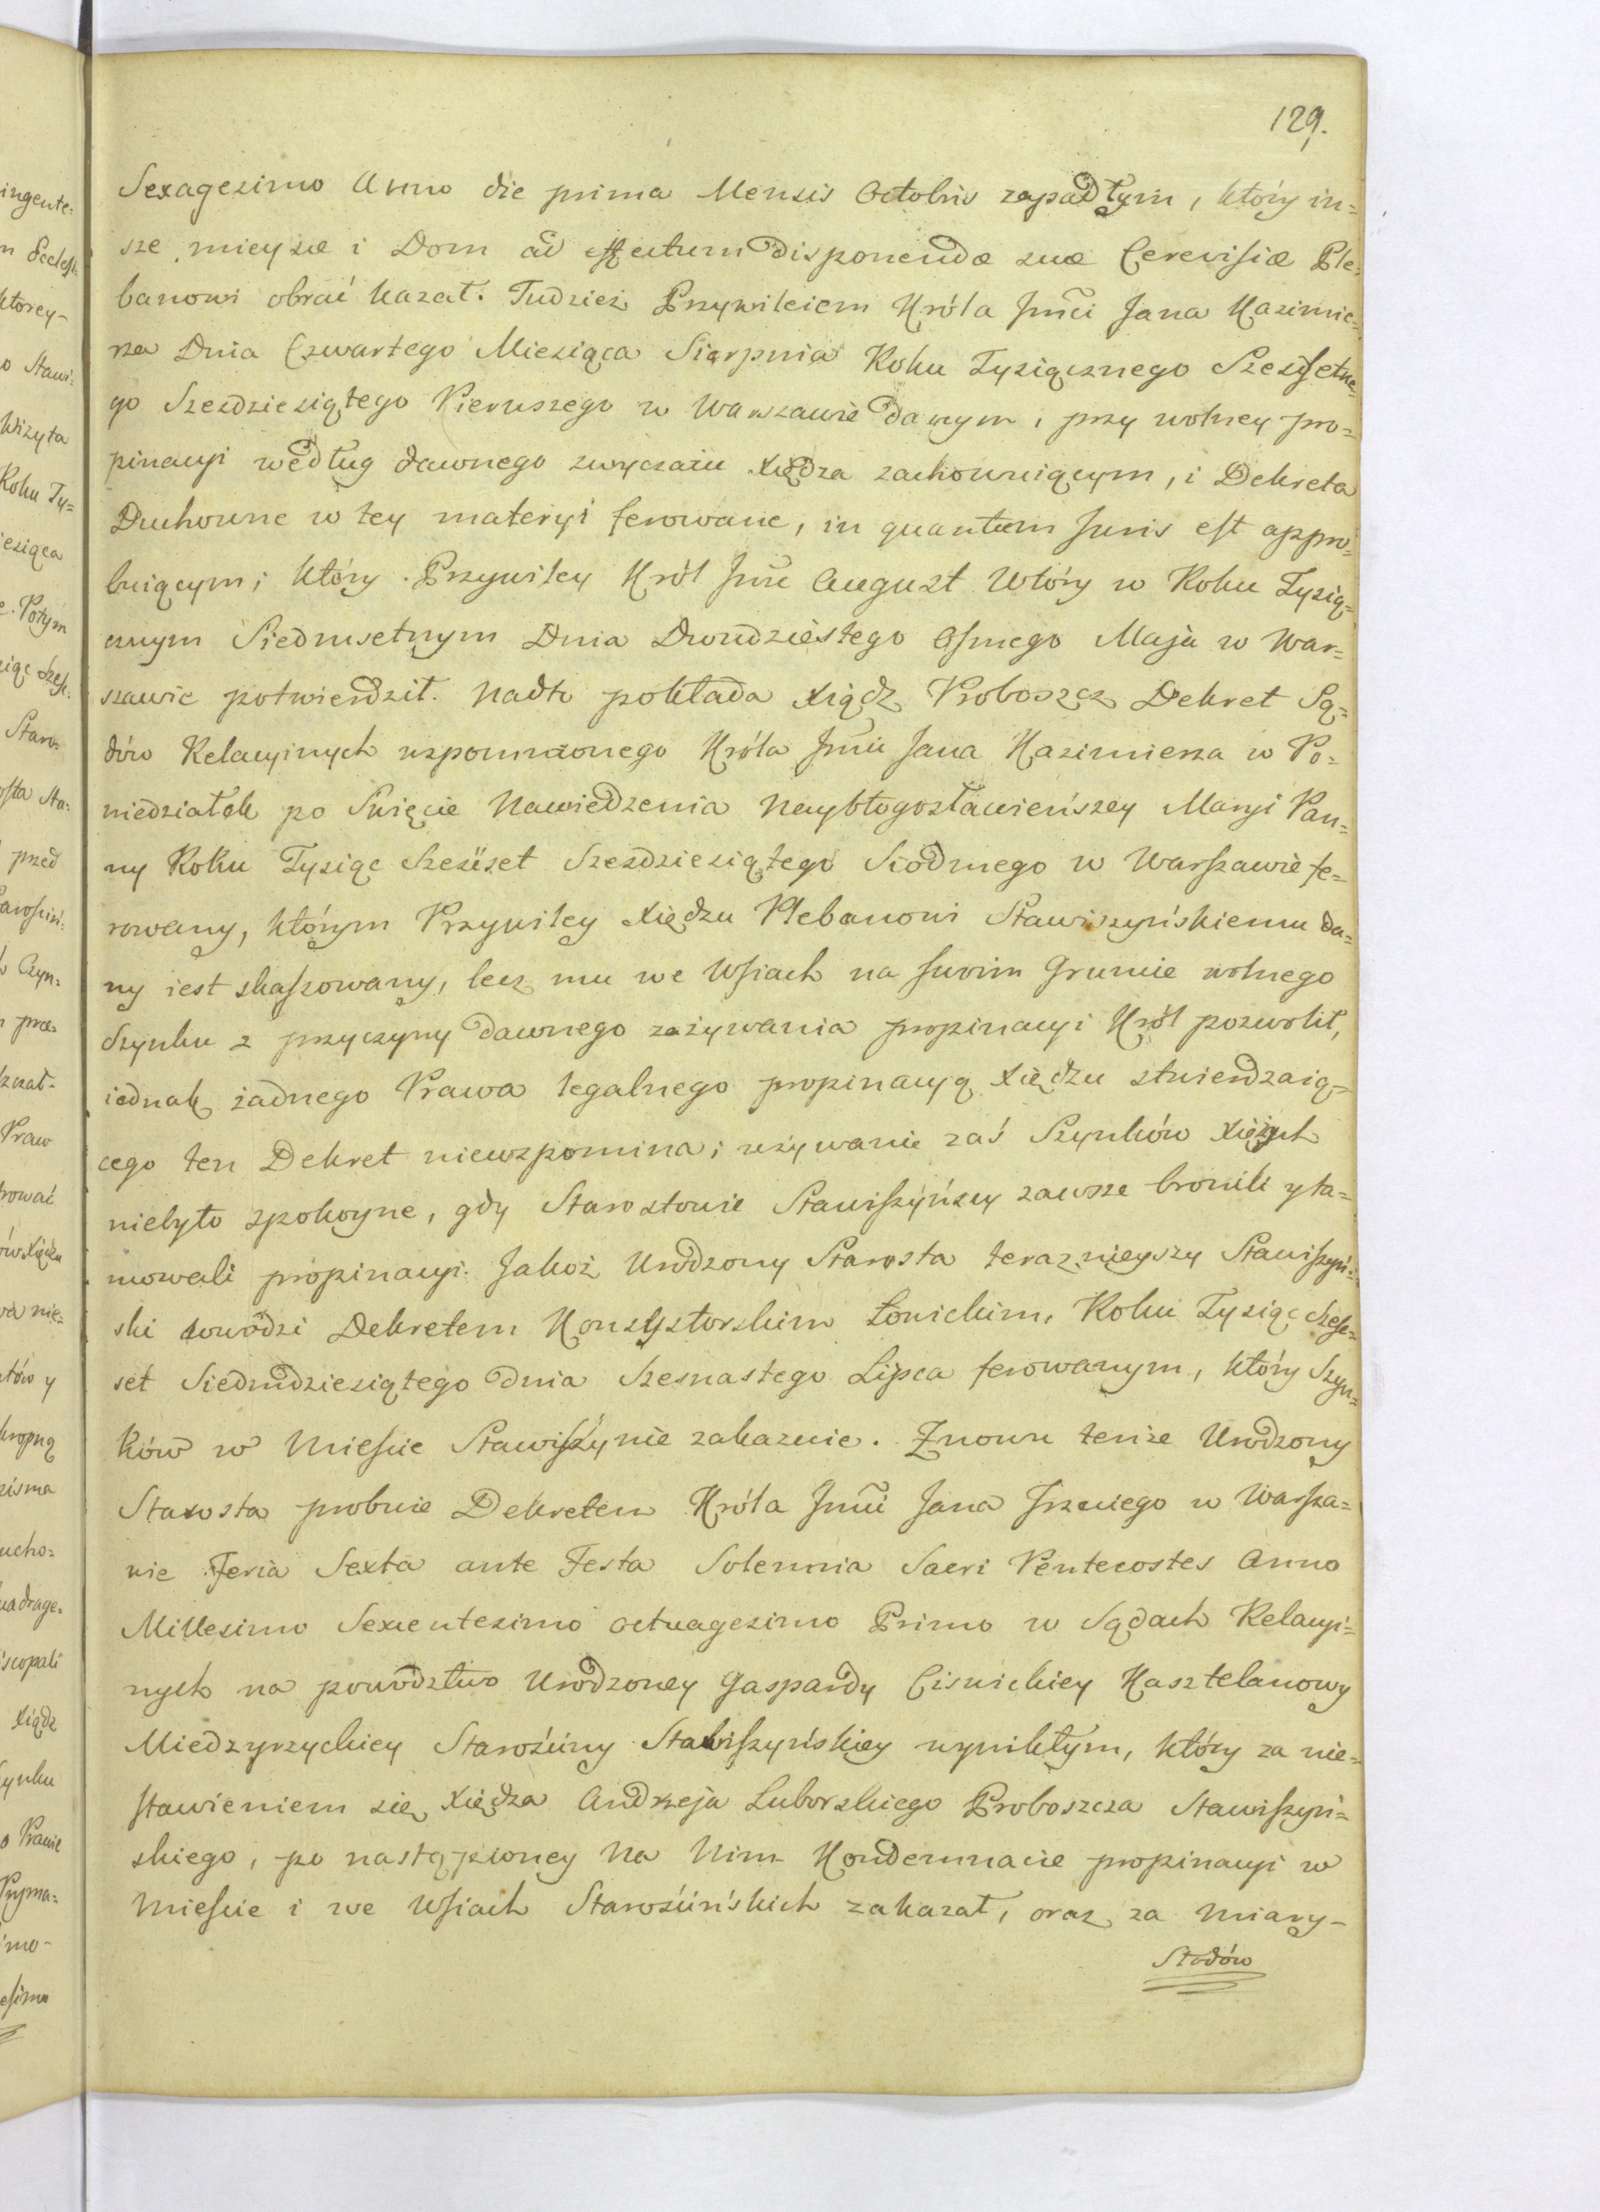 129.
Sexagesimo Anno die prima Mensis Octobris zapadłym, który in=
sze mieysce i Dom ad effectum disponendæ suæ Cerevisiæ Ple=
banowi obrać kazał. Tudzież Przywileiem Króla Jmci Jana Kazimie=
rza Dnia Czwartego Miesiąca Sierpnia Roku Tysiącznego Szesćsetne=
go Szesdziesiątego Pierwszego w Warszawie danym, przy wolney pro=
pinacyi według dawnego zwyczaiu Xiędza zachowuiącym, i Dekreta
Duchowne w tey materyi ferowane, in quantum Juris est appro=
buiącym; który Przywiley Król Jmć August Wtóry w Roku Tysią=
cznym Siedmsetnym Dnia Dwudziestego Osmego Maja w War=
szawie potwierdził. Nadto pokłada Xiądz Proboszcz Dekret Są=
dów Relacyinych wspomnionego Króla Jmci Jana Kazimierza w Po=
niedziałek po Swięcie Nawiedzenia Naybłogosławieńszey Maryi Pan=
ny Roku Tysiąc Szesćset Szesdziesiątego Siodmego w Warszawie fe=
rowany, którym Przywiley Xiędzu Plebanowi Stawiszyńskiemu da=
ny iest skassowany, lecz mu we Wsiach na swoim Gruncie wolnego
Szynku z przyczyny dawnego zażywania propinacyi Król pozwolił,
iednak żadnego Prawa legalnego propinacyą Xiędzu stwierdzaią=
cego ten Dekret niewspomina; używanie zaś Szynków Xiężych
niebyło spokoyne, gdy Starostowie Stawiszyńscy zawsze bronili y ta=
mowali propinacyi. Jakoż Urodzony Starosta teraznieyszy Stawiszyń=
ski dowodzi Dekretem Konsystorskim Łowickim, Roku Tysiąc Szesć=
set Siedmdziesiątego dnia Szesnastego Lipca ferowanym, który Szyn=
ków w Miescie Stawiszynie zakazuie. Znowu tenże Urodzony
Starosta probuie Dekretem Króla Jmci Jana Trzeciego w Warsza=
wie Feria Sexta ante Festa Solennia Sacri Pentecostes Anno
Millesimo Sexcentesimo octuagesimo Primo w Sądach Relacyi=
nych na powodztwo Urodzoney Gaspardy Cisnickiey Kasztelanowy
Miedzyrzyckiey Starościny Stawiszyńskiey wynikłym, który za nie=
stawieniem się Xiędza Andrzeja Luborskiego Proboszcza Stawiszyń=
skiego, po nastąpioney na Nim Kondemnacie propinacyi w
Miescie i we Wsiach Starościńskich zakazał, oraz za miary=
Słodów